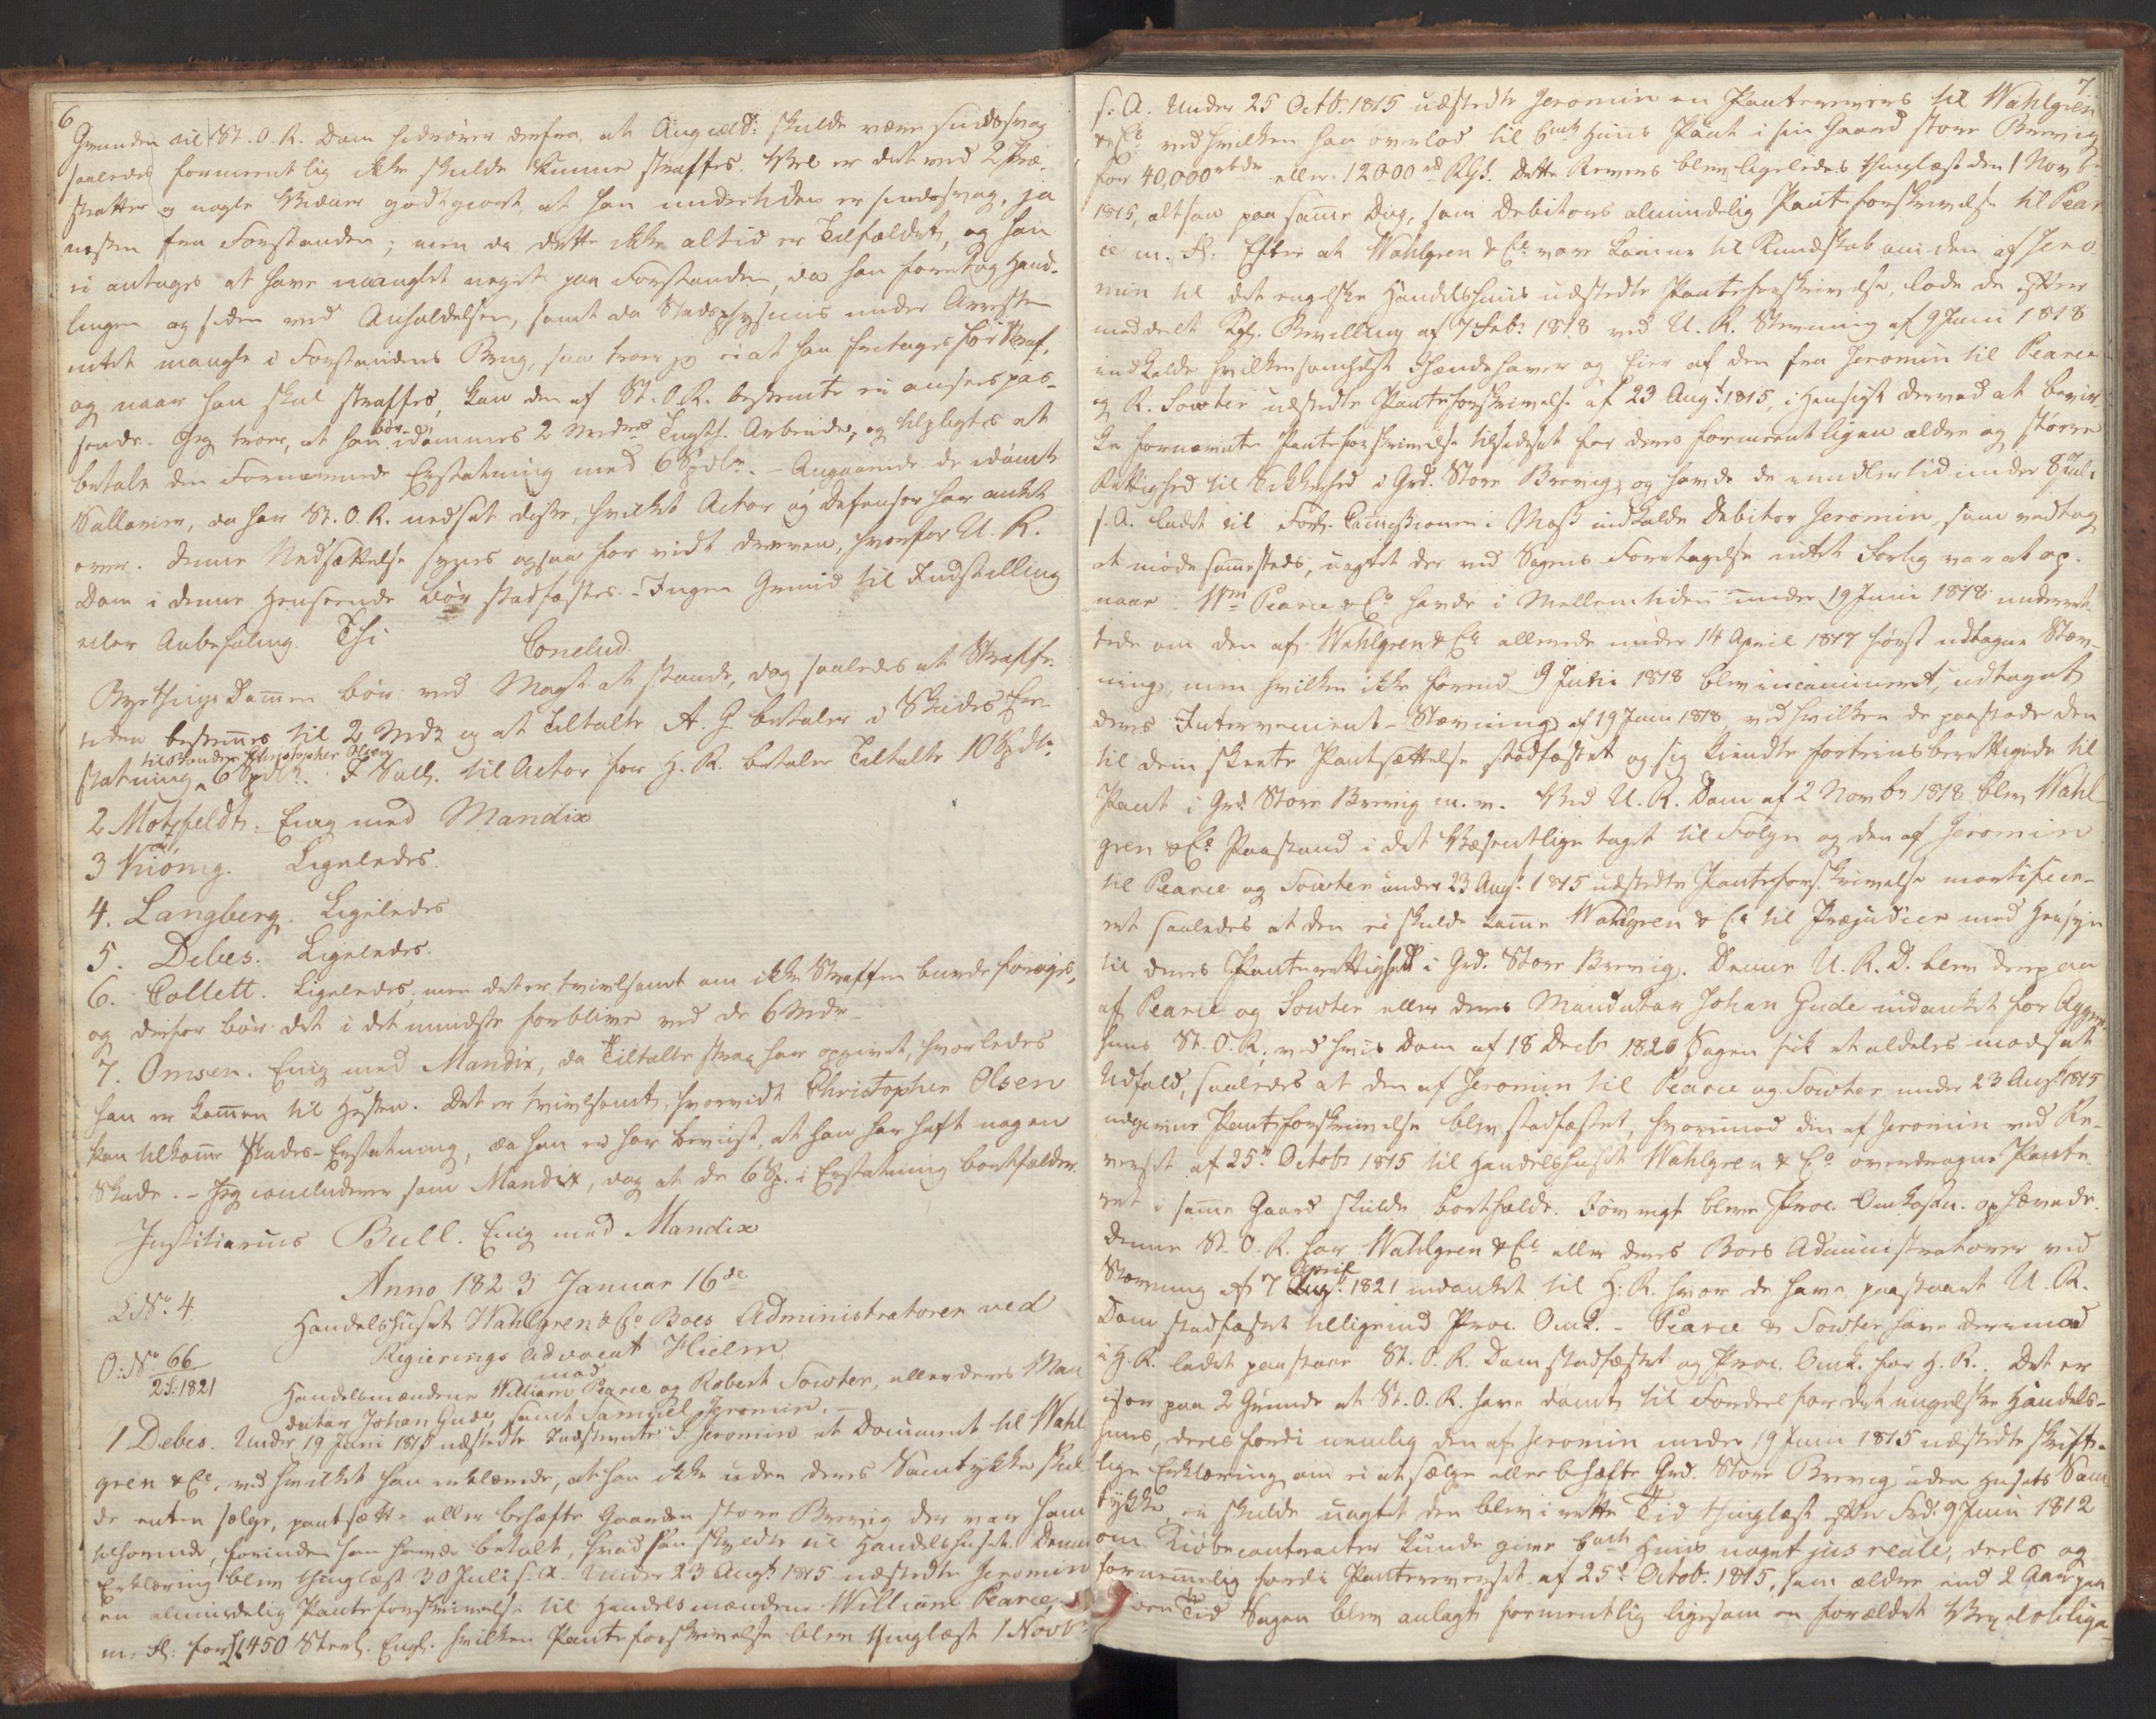 6
Grunden til St. O. R. Dom hidrører derfra, at Angjeld: skulde være sindssvag
saaledes formeentlig ikke skulde kunne straffes. Vel er det ved 2 Præ-
ster attester og nogle Vidner godtgiort, at han undertiden er sindssvag, ja
næsten fra Forstanden; men da dette ikke altid er Tilfældet, og han
ei antages at have manglet noget paa Forstanden, da han foretog Hand-
lingen og siden ved Anholdelsen, samt da Stadsphysicus under Arresten
intet mangle i Forstandens Brug, saa troer jeg ei at han fritages for Straf,
og naar han skal straffes, kan den af St. O. R. bestemte ei ansees pas-
sende. Jeg troer, at han bør idømmes 2 Mdrs Tugth. Arbeide, og tilpligtes at
betale den Fornærmede Erstatning med 6 Spdlr. - Angaaende de idømte
Sallarier, da har St. O. R. nedsat disse, hvilket Actor og Defensor har anket
over. Denne Nedsættelse synes ogsaa for vidt dreven, hvorfor U. R.
Dom i denne Henseende bør stadfæstes. - Ingen Grund til Indstilling
eller Anbefaling. Thi
Conclud.
Byetings Dommen bør ved Magt at stande, dog saaledes at Straffe-
tiden bestemmes til 2 Mdr og at Tiltalte A. G. betaler i Skades Er-
statning til Manden Christopher Olsen 6 Spdlr. I Sall. til Actor for H. R. betaler Tiltalte 10 Spdlr.
2 Motzfeldt. Enig med Mandix
3 Kiønig. Ligeledes.
4. Langberg. Ligeledes
5. Debes. Ligeledes.
6. Collett. Ligeledes; men det er tvivlsomt om ikke Straffen burde forøges,
og derfor bør det i det mindste forblive ved de 6 Mdr.
7. Omsen. Enig med Mandix, da Tiltalte strax har opgivet, hvorledes
han er kommen til Hesten. Det er tvivlsomt, hvorvidt Christopher Olsen
kan tilkomme Skades-Erstatning, da han ei har beviist, at han har haft nogen
Skade. - Jeg concluderer som Mandix, dog at de 6 Sp. i Erstatning bortfalder.
Justitiarius Bull. Enig med Mandix
Anno 1823 Januar 16de
L No. 4. Handelshuset Wahlgren & Co Boes Administratorer ved
Regierings Advocat Hielm
O: No 66/2 S: 1821 mod
Handelsmændene William Pearce og Robert Sowter, eller deres Man
datar Johan Gude, samt Samuel Jeromin. -
1 Debes. Under 19 Juni 1815 udstedte Indstevnte S. Jeromin et Document til Wahl
gren & Co, ved hvilket han erklærede, at han ikke uden deres Samtykke skul
de enten sælge, pantsætte eller behæfte Gaarden store Brevig der var ham
tilhørende, forinden han havde betalt, hvad han skyldte til Handelshuset. Denne
Erklæring blev thinglæst 30 Juli s. A. Under 23 Augt 1815 udstedte Jeromin
en almindelig Panteforskrivelse til Handelsmændene William Pearce,
m. fl. for £ 1450 Sterl. Engl. hvilken Panteforskrivelse blev thinglæst 1 Novbr
7
s: A. Under 25 Octb. 1815 udstedte Jeromin en Pantereverers til Wahlgren
& Co ved hvilken han overlod til bmte Huus Pant i sin Gaard store Brevig
for 40,000 rbdr eller 12000 rd RGS. Dette Revers blev ligeledes thinglæst den 1 Novb
1815, altsaa paa samme Dag, som Debitors almindelig Panteforskrivelse til Pear
ce m. fl. Efter at Wahlgren & Co vare komne til Kundskab om den af Jero-
min til det engelske Handelshuus udstedte Panteforskrivelse, lode de efter
meddelt Kgl. Bevilling af 7 Febr: 1818 ved U. R. Stevning af 9 Juni 1818
indkalde hvilkensomhelst Ihændehaver og Eier af den fra Jeromin til Pearce
og R. Sowter udstedte Panteforskrivelse af 23 Augt 1815, i Hensigt derved at bevir-
ke fornævnte Panteforskrivelse tilsidesat for deres formeentligen ældre og større
Rettighed til Sikkerhed i Grd. Store Brevig, og havde de imidlertid under 8 Juli
s. A. ladet til Forl. Commissionen i Moss indkalde Debitor Jeromin, som vedtog
at møde sammesteds, uagtet der ved Sagens Foretagelse intet Forlig var at op-
naae. Wm Pearce & Co havde i Mellemtiden under 19 Juni 1818 underret-
tede om den af Wahlgren & Co allerede under 14 April 1817 først udtagne Stæv-
ning, men hvilken ikke førend 9 Juni 1818 blev incamineret, udtaget
deres Intervenient-Stævning af 19 Juni 1818, ved hvilken de paastode den
til dem skeete Pantsættelse stadfæstet og sig kiendte fortrinsberettigede til
Pant i Grd. Store Brevig m. v. Ved U. R. Dom af 2 Novbr 1818 blev Wahl-
gren & Co Paastand i det Væsentlige taget til Følge og den af Jeromin
til Pearce og Sowter under 23 Augt 1815 udstedte Panteforskrivelse mortificee-
ret saaledes at den ei skulde komme Wahlgren & Co til Præjudice med Hensyn
til deres Panterettighed i Grd. Store Brevig. Denne U. R. D. blev derpaa
af Pearce og Sowter eller deres Mandatar Johan Gude indanket for Agger-
huus St. O. R., ved hvis Dom af 18 Decbr 1820 Sagen fik et aldeles modsat
Udfald, saaledes at den af Jeromin til Pearce og Sowter under 23 Augt 1815
udgivne Panteforskrivelse blev stadfæstet, hvorimod den af Jeromin ved Re-
verset af 25de Octobr 1815 til Handelshuset Wahlgren & Co overdragne Pante-
ret i samme Gaard skulde bortfalde. Iøvrigt bleve Proc. Omkostn. ophævede.
Denne St. O. R. har Wahlgren & Co eller deres Boes Administratorer ved
Stævning af 7 April 1821 indanket til H. R. hvor de have paastaaet U. R.
Dom stadfæstet tilligemed Proc. Omk. - Pearce & Sowter have derimod
i H. R. ladet paastaae St. O. R. Dom stadfæstet og Proc. Omk. for H. R. Det er
især paa 2 Grunde at St. O. R. have dømt til Fordeel for det engelske Handels-
huus, deels fordi nemlig den af Jeromin under 19 Juni 1815 udstedte skrift-
lige Erklæring om ei at sælge eller behæfte Grd. Store Brevig uden Husets Sam
tykke, ei skulde uagtet den blev i rette Tid thinglæst efter Frd. 9 Juni 1812
om Kiøbecontracter kunde give bmte Huus noget jus reale, deels og
fornemmelig fordi Pantereverset af 25de Octob. 1815, som ældre end 2 Aar paa
den Tid Sagen blev anlagt formeentlig ligesom en forældet Vexelobliga-